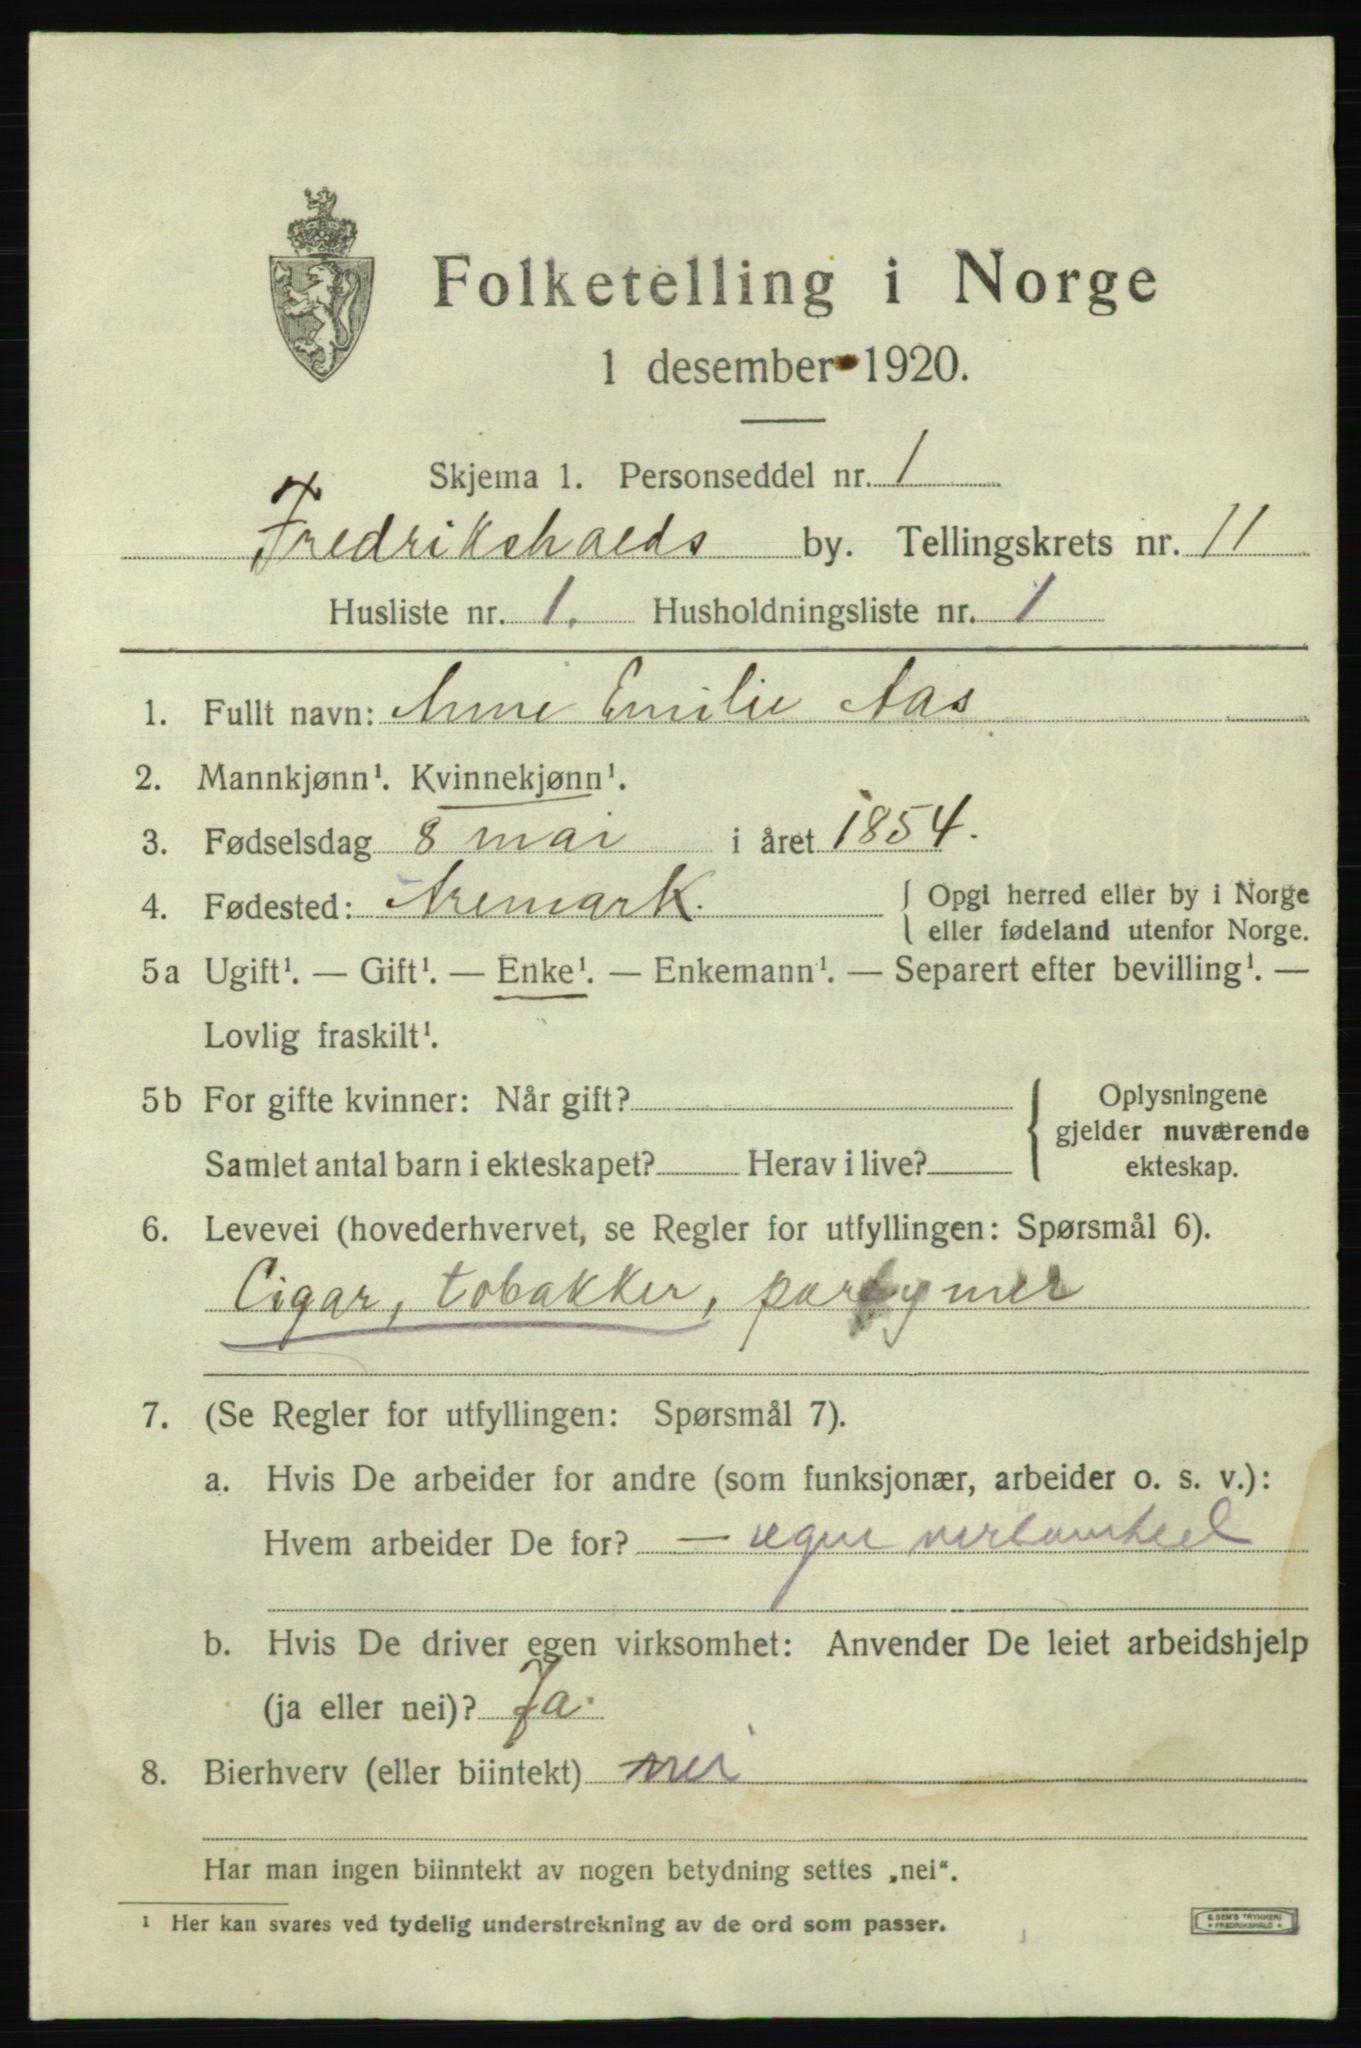 Folketelling i Norge
1 desember 1920.
Skjema 1. Personseddel nr. 1
Fredrikshalds by. Tellingskrets nr. 11
Husliste nr. 1. Husholdningsliste nr. 1
1. Fullt navn: Anne Emilie Aas
2. Mannkjønn¹. Kvinnekjønn¹.
3. Fødselsdag 8 mai i året 1854.
4. Fødested: Aremark. { Opgi herred eller by i Norge
eller fødeland utenfor Norge.
5a Ugift¹. — Gift¹. — Enke¹. — Enkemann¹. — Separert efter bevilling¹. —
Lovlig fraskilt¹.
5b For gifte kvinner: Når gift? { Oplysningene
gjelder nuværende
Samlet antal barn i ekteskapet? Herav i live? ekteskap.
6. Levevei (hovederhvervet, se Regler for utfyllingen: Spørsmål 6).
Cigar, tobakker, parfymer
7. (Se Regler for utfyllingen: Spørsmål 7).
a. Hvis De arbeider for andre (som funksjonær, arbeider o. s. v.):
Hvem arbeider De for? —
b. Hvis De driver egen virksomhet: Anvender De leiet arbeidshjelp
(ja eller nei)? Ja.
8. Bierhverv (eller biintekt) nei
Har man ingen biinntekt av nogen betydning settes „nei“.
¹ Her kan svares ved tydelig understrekning av de ord som passer.
E. SEM'S TRYKKERI
* FREDRIKSHALD *